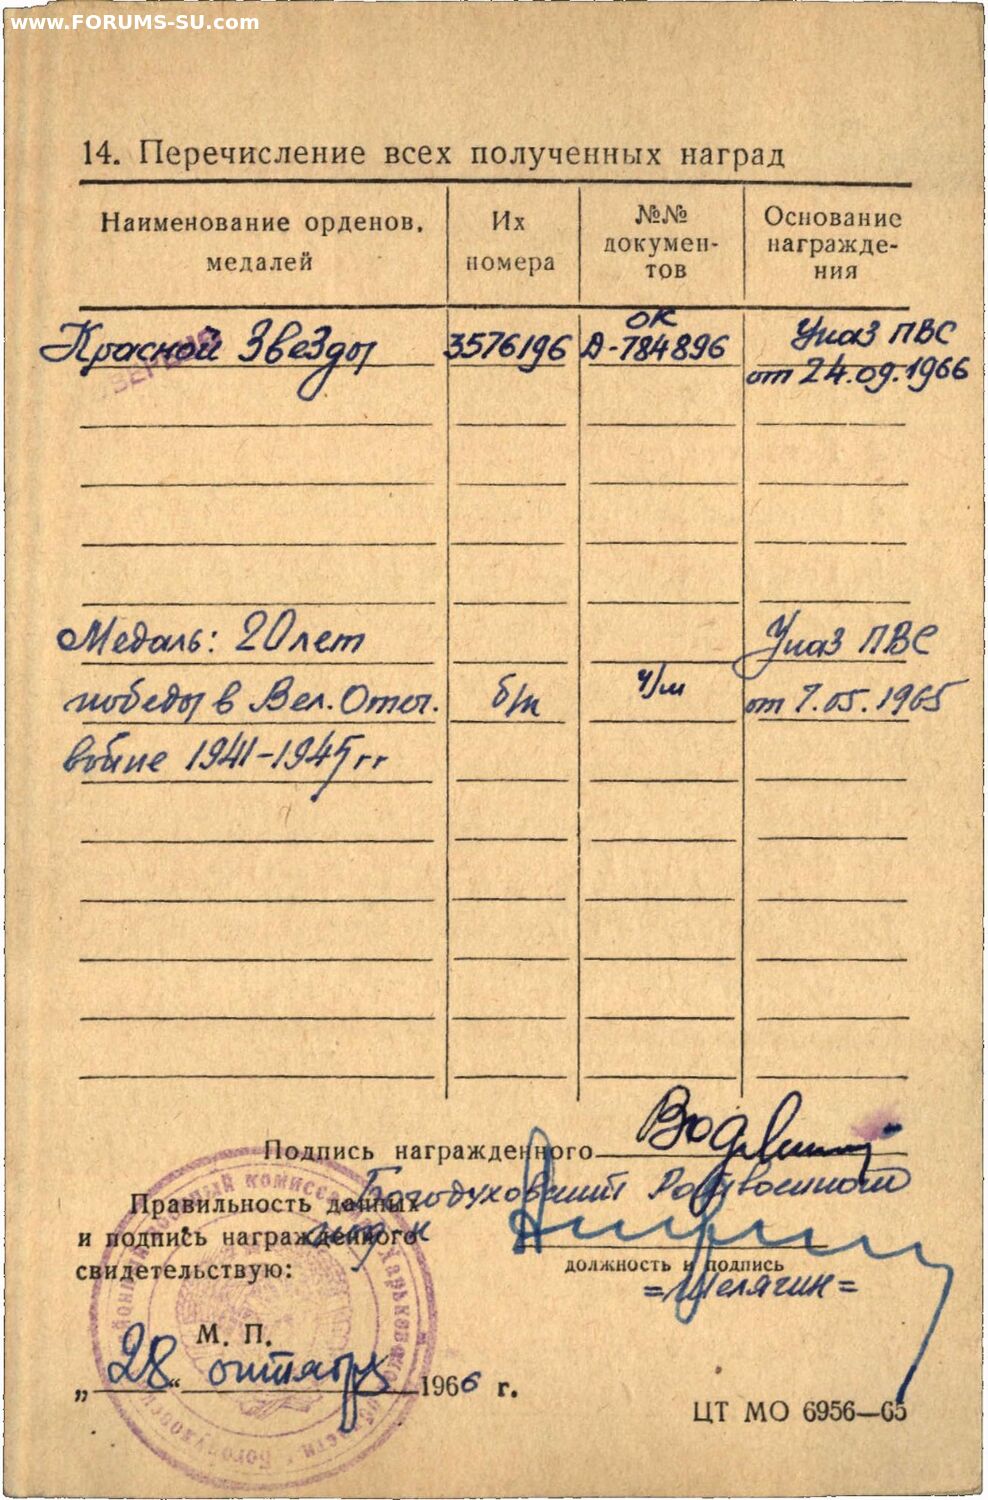 www.FORUMS-SU.com
14. Перечисление всех полученных наград
Наименование орденов, медалей
Их номера
№№ докумен-
тов
Основание
награжде-
ния
Красной Звезды 3576196 ОК Д-784896 Указ ПВС
от 24.09.1966
Медаль: 20 лет Указ ПВС
победы в Вел. Отеч. б/н ч/м от 7.05.1965
войне 1941-1945 гг
Подпись награжденного
Правильность данных Богодуховский Райвоенком
и подпись награжденного
свидетельствую:
должность и подпись
=Шелягин=
М. П.
„28“ октября 1966 г.
ЦТ МО 6956—65